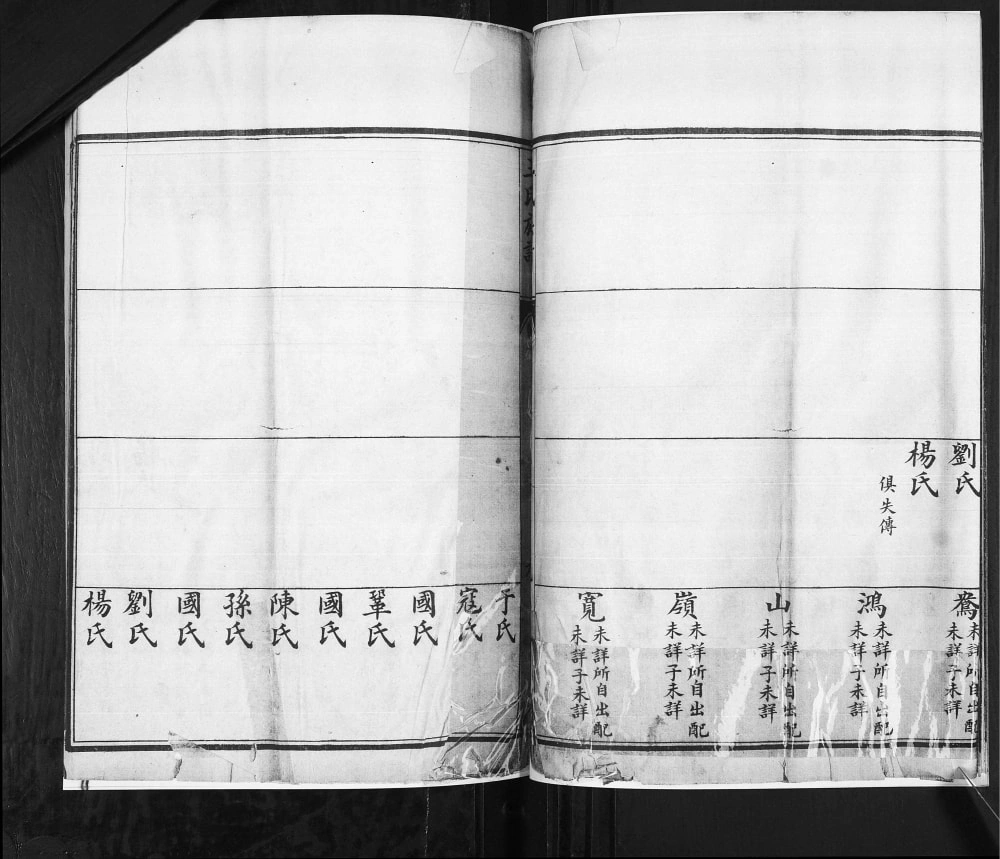 劉氏
楊氏
俱失傳
鶱
未詳所自出配
未詳子未詳
鴻
未詳所自出配
未詳子未詳
山
未詳所自出配
未詳子未詳
嶺
未詳所自出配
未詳子未詳
寬
未詳所自出配
未詳子未詳
王氏族譜
于氏
寇氏
國氏
鞏氏
國氏
陳氏
孫氏
國氏
劉氏
楊氏